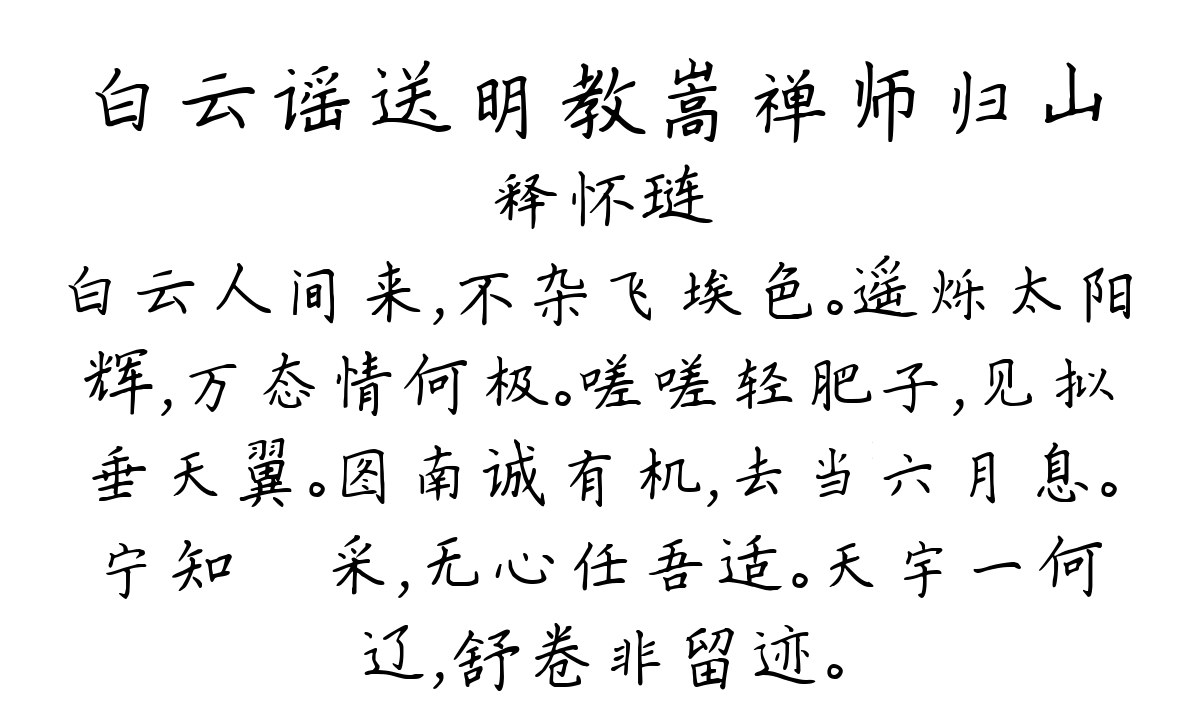 白云谣送明教嵩禅师归山
释怀琏
白云人间来,不杂飞埃色。遥烁太阳
辉,万态情何极。嗟嗟轻肥子,见拟
垂天翼。图南诚有机,去当六月息。
宁知 采,无心任吾适。天宇一何
辽,舒卷非留迹。